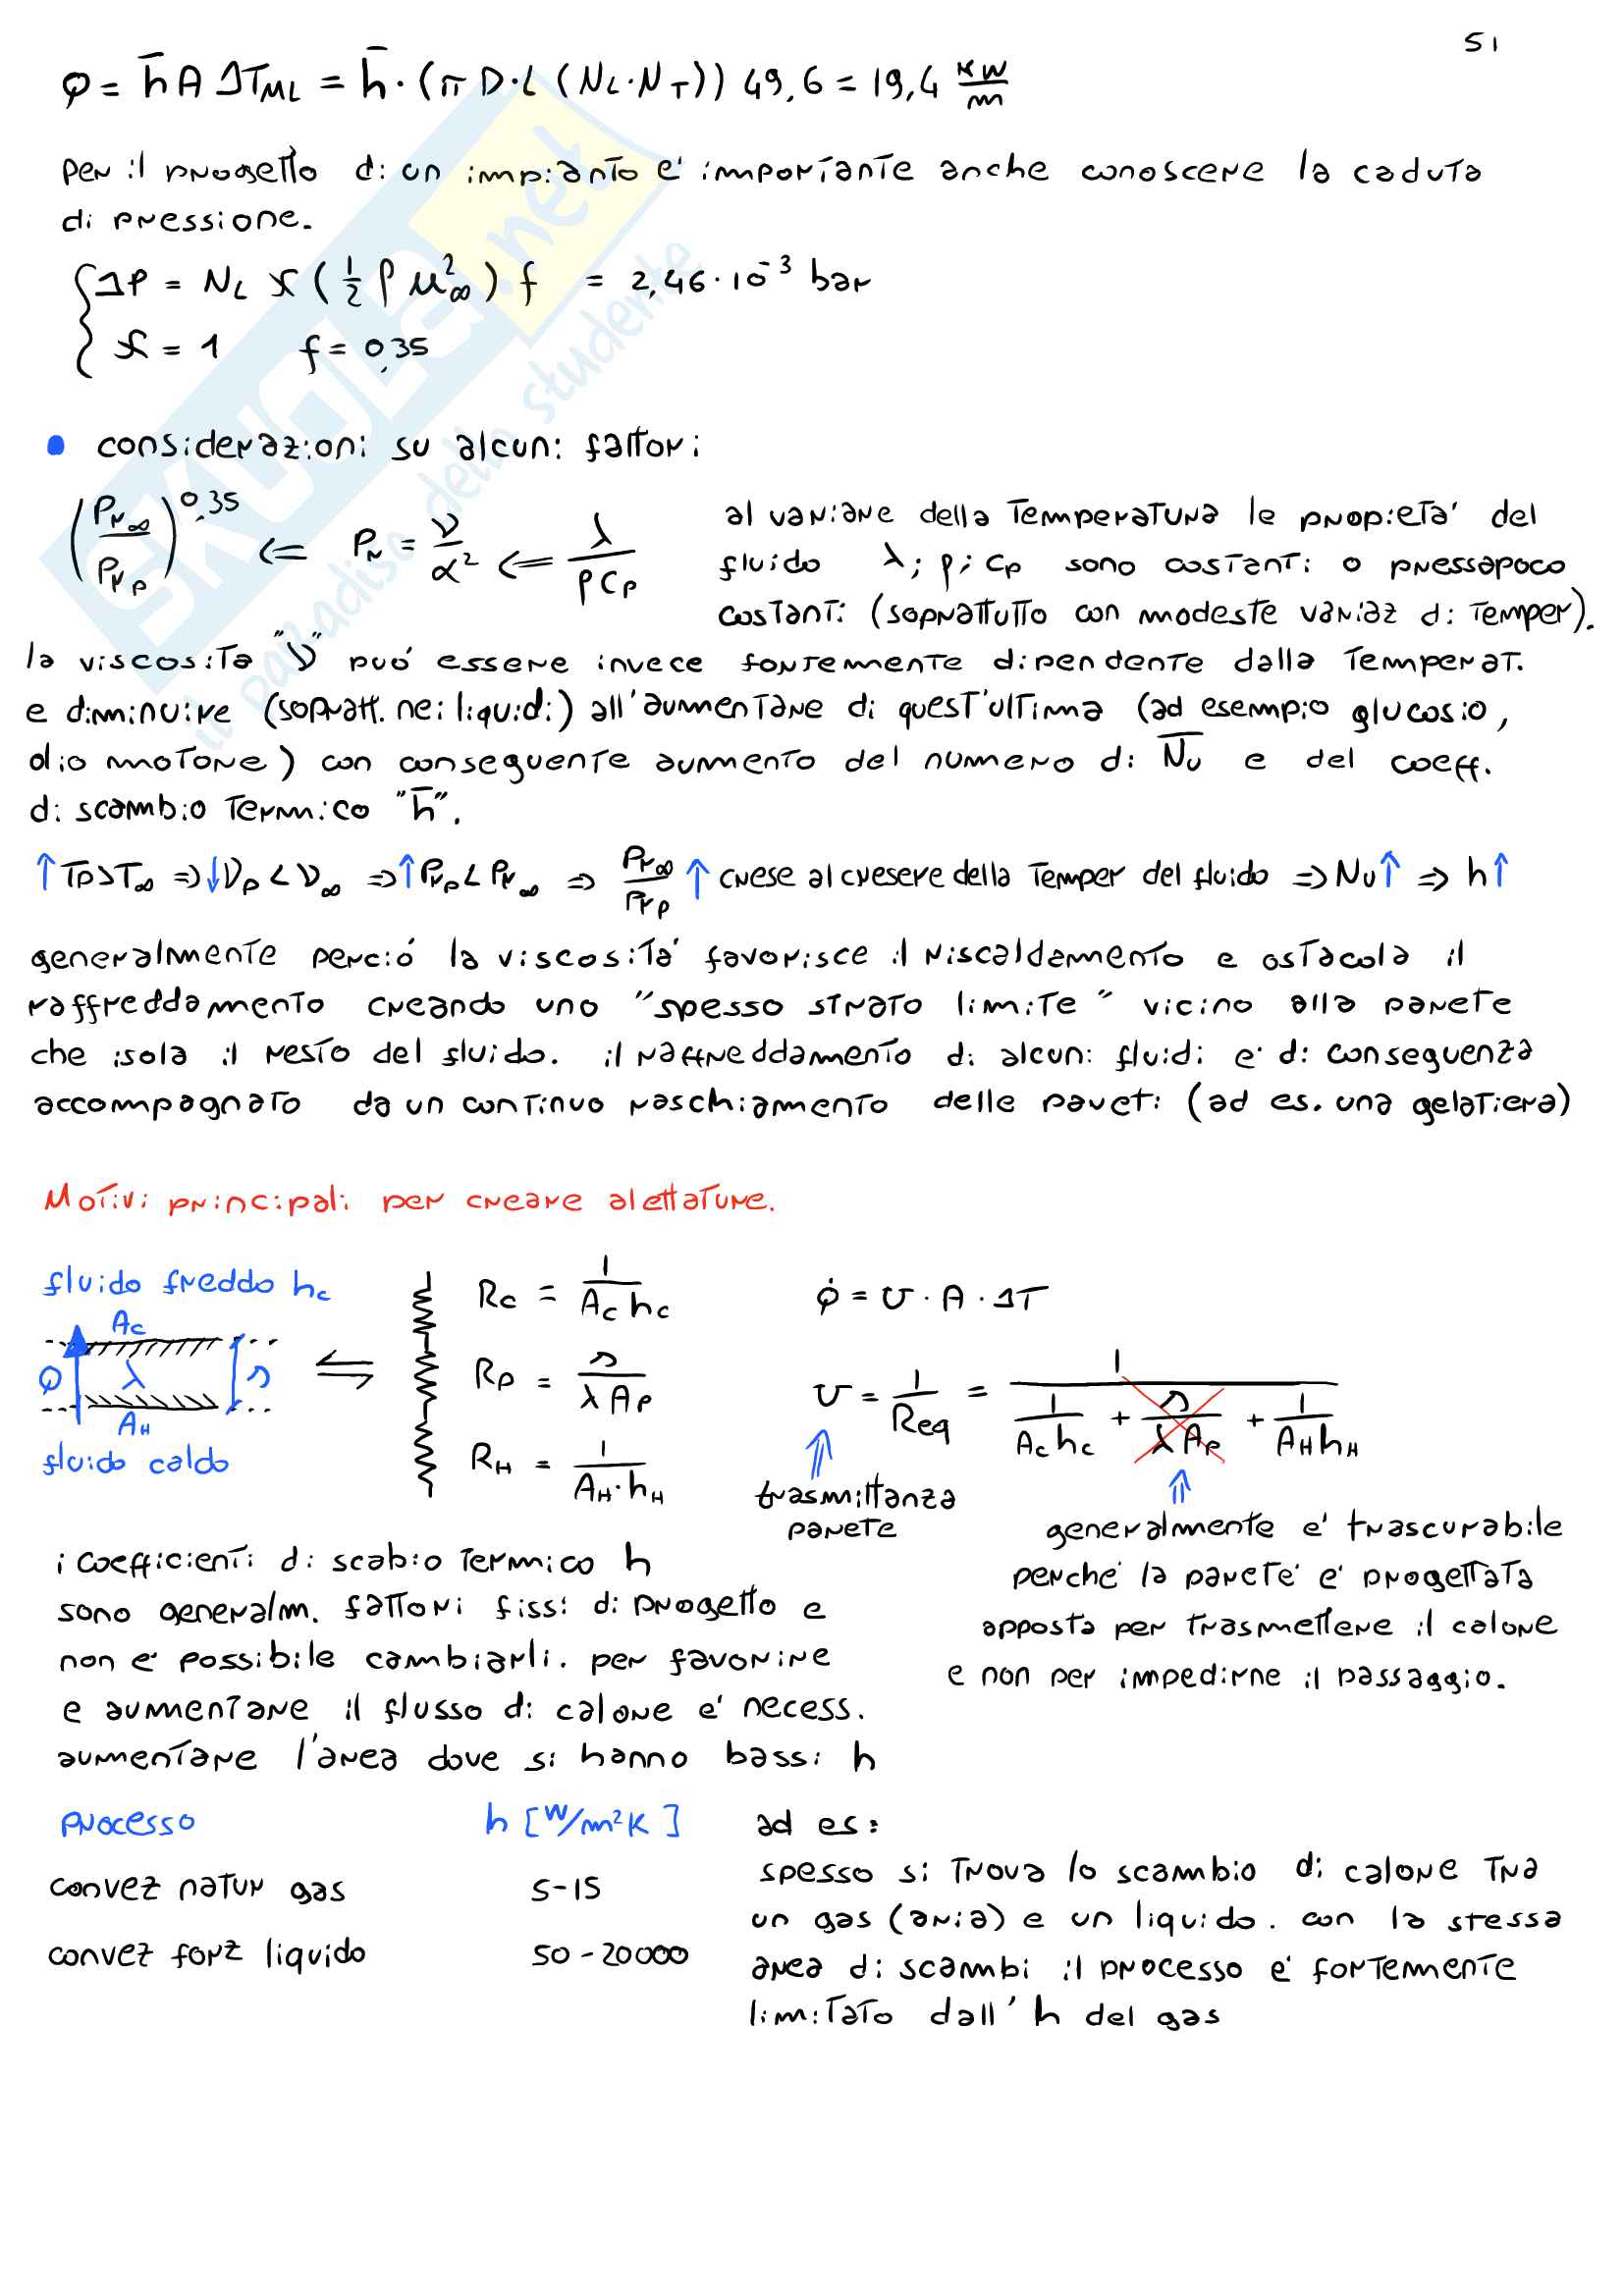 51
φ = h̄ A ΔT_ML = h̄ · (π D · L (N_L · N_T)) 49,6 = 19,4 kW/m
per il progetto di un impianto e' importante anche conoscere la caduta
di pressione.
Δp = N_L χ (½ ρ u²_∞) f = 2,46 · 10⁻³ bar
χ = 1 f = 0,35
• considerazioni su alcuni fattori
(Pr_∞ / Pr_p)^0,35 ⇐ Pr = ν/α² ⇐ λ/(ρ Cp)
al variare della temperatura le proprieta' del
fluido λ; ρ; Cp sono costanti o pressapoco
costanti (soprattutto con modeste variaz di temper).
la viscosita "ν" puó essere invece fortemente dipendente dalla temperat.
e diminuire (sopratt. nei liquidi) all'aumentare di quest'ultima (ad esempio glucosio,
olio motore) con conseguente aumento del numero di N̄u e del coeff.
di scambio termico "h̄".
↑ Tp > T_∞ ⇒ ↓ ν_p < ν_∞ ⇒ ↑ Pr_p < Pr_∞ ⇒ Pr_∞/Pr_p ↑ crese al cresere della temper del fluido ⇒ Nu ↑ ⇒ h ↑
generalmente perció la viscosita' favorisce il riscaldamento e ostacola il
raffreddamento creando uno "spesso strato limite" vicino alla parete
che isola il resto del fluido. il raffreddamento di alcuni fluidi e' di conseguenza
accompagnato da un continuo raschiamento delle pareti (ad es. una gelatiera)
Motivi principali per creare alettature.
fluido freddo h_c
A_c
φ λ s
A_H
fluido caldo
R_c = 1/(A_c h_c)
R_p = s/(λ A_p)
R_H = 1/(A_H · h_H)
φ̇ = U · A · ΔT
U = 1/Req = 1/(1/(A_c h_c) + s/(λ A_p) + 1/(A_H h_H))
trasmittanza
parete
generalmente e' trascurabile
perche' la parete' e' progettata
apposta per trasmettere il calore
e non per impedirne il passaggio.
i coefficienti di scabio termico h
sono generalm. fattori fissi di progetto e
non e' possibile cambiarli. per favorire
e aumentare il flusso di calore e' necess.
aumentare l'area dove si hanno bassi h
processo h [W/m²K]
convez natur gas 5-15
convez forz liquido 50-20000
ad es:
spesso si trova lo scambio di calore tra
un gas (aria) e un liquido. con la stessa
area di scambi il processo e' fortemente
limitato dall'h del gas
SKUOLA.net
il paradiso dello studente